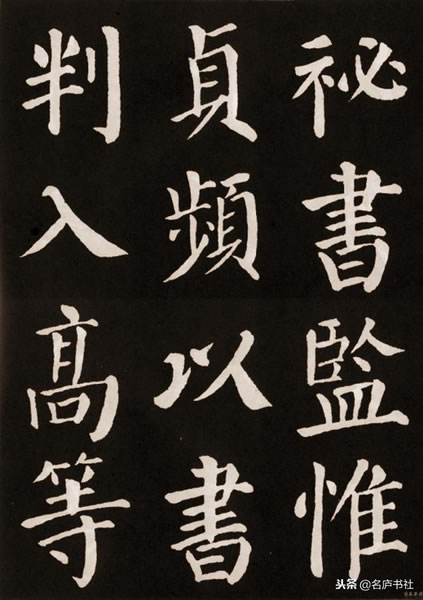 祕書監惟
貞頻以書
判入髙等
头条@名庐书社